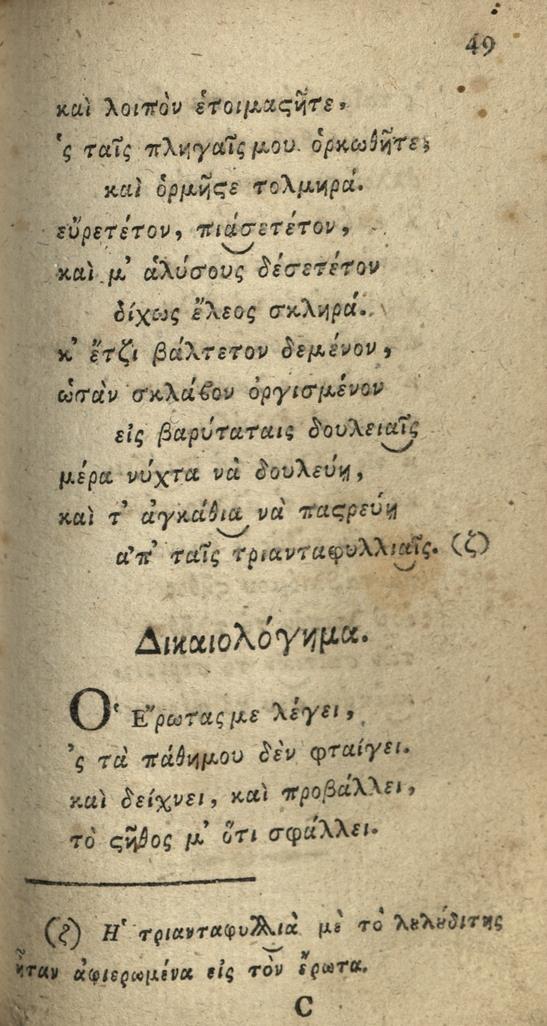 49
καὶ λοιπὸν ἑτοιμαϛῆτε,
'ς ταῖς πληγαῖς μου ὁρκωθῆτε,
καὶ ὁρμῆϛε τολμηρά.
εὕρετέτον, πιάσετέτον,
καὶ μ' ἁλύσους δέσετέτον
δίχως ἔλεος σκληρά.
κ' ἔτζι βάλτετον δεμένον,
ὡσὰν σκλάβον ὀργισμένον
εἰς βαρύταταις δουλειαῖς
μέρα νύχτα νὰ δουλεύῃ,
καὶ τ' ἀγκάθια νὰ παϛρεύῃ
ἀπ' ταῖς τριανταφυλλιαῖς. (ζ)
Δικαιολόγημα.
Ὁ Ἔρωτας με λέγει,
'ς τὰ πάθημου δὲν φταίγει.
καὶ δείχνει, καὶ προβάλλει,
τὸ ϛῆθος μ' ὅτι σφάλλει.
(ζ) Ἡ τριανταφυλλιὰ μὲ τὸ λȣλȣ́διτης
ἦταν ἀφιερωμένα εἰς τὸν ἔρωτα.
C